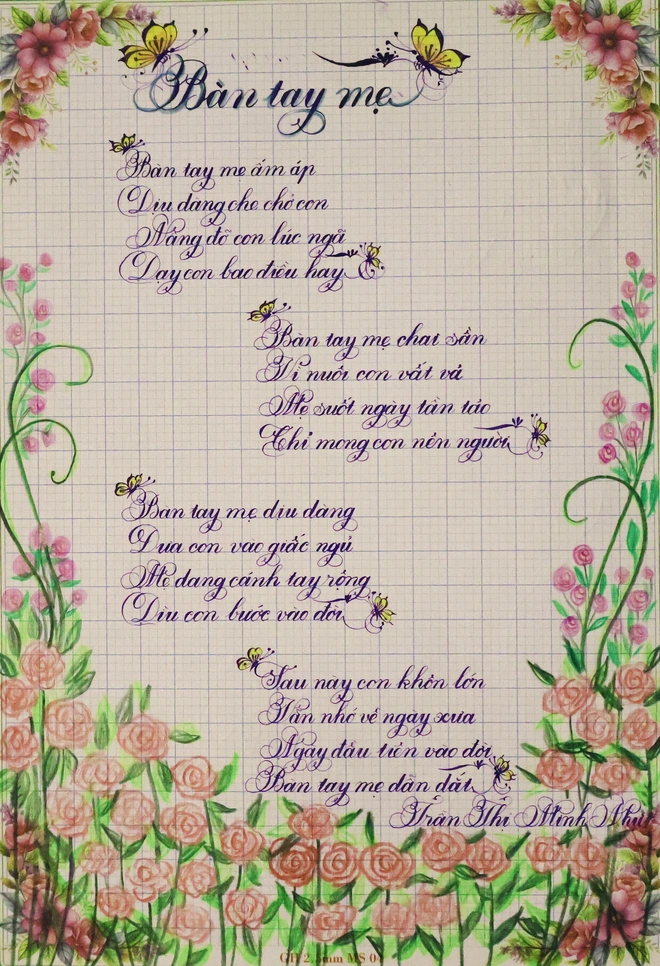 Bàn tay mẹ
Bàn tay mẹ ấm áp
Dịu dàng che chở con
Nâng đỡ con lúc ngã
Dạy con bao điều hay
Bàn tay mẹ chai sần
Vì nuôi con vất vả
Mẹ suốt ngày tần tảo
Chỉ mong con nên người
Bàn tay mẹ dịu dàng
Đưa con vào giấc ngủ
Mẹ dang cánh tay rộng
Dìu con bước vào đời
Sau này con khôn lớn
Vẫn nhớ về ngày xưa
Ngày đầu tiên vào đời
Bàn tay mẹ dẫn dắt
Trần Thị Minh
GH 2.5mm MS 04